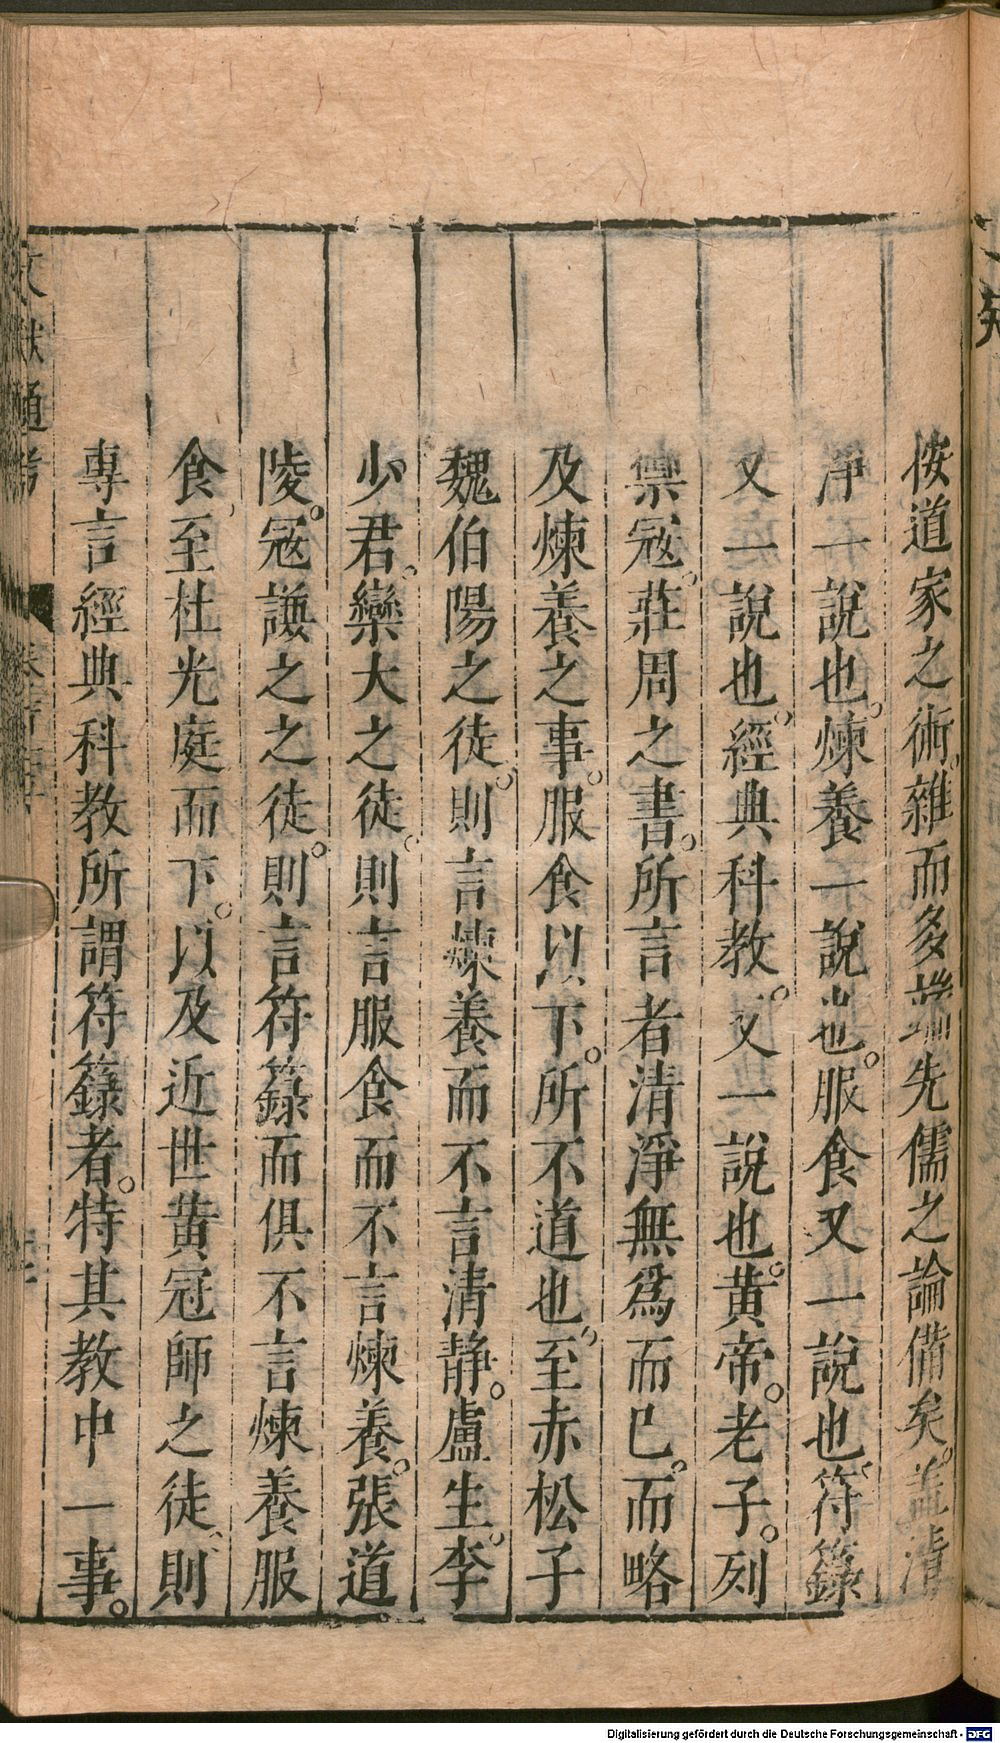 按道家之術。雜而多端先儒之論備矣。蓋清
淨一說也。煉養一說也。服食又一說也。符籙
又一說也。經典科教。又一說也。黃帝。老子。列
禦冦。莊周之書。所言者清淨無爲而已。而略
及煉養之事。服食以下。所不道也。至赤松子
魏伯陽之徒。則言煉養而不言清静。盧生。李
少君。欒大之徒。則言服食而不言煉養。張道
陵。冦謙之之徒。則言符籙而俱不言煉養服
食。至杜光庭而下。以及近世黃冠師之徒。則
專言經典科教所謂符籙者。特其教中一事。
文獻通考
Digitalisierung gefördert durch die Deutsche Forschungsgemeinschaft - DFG